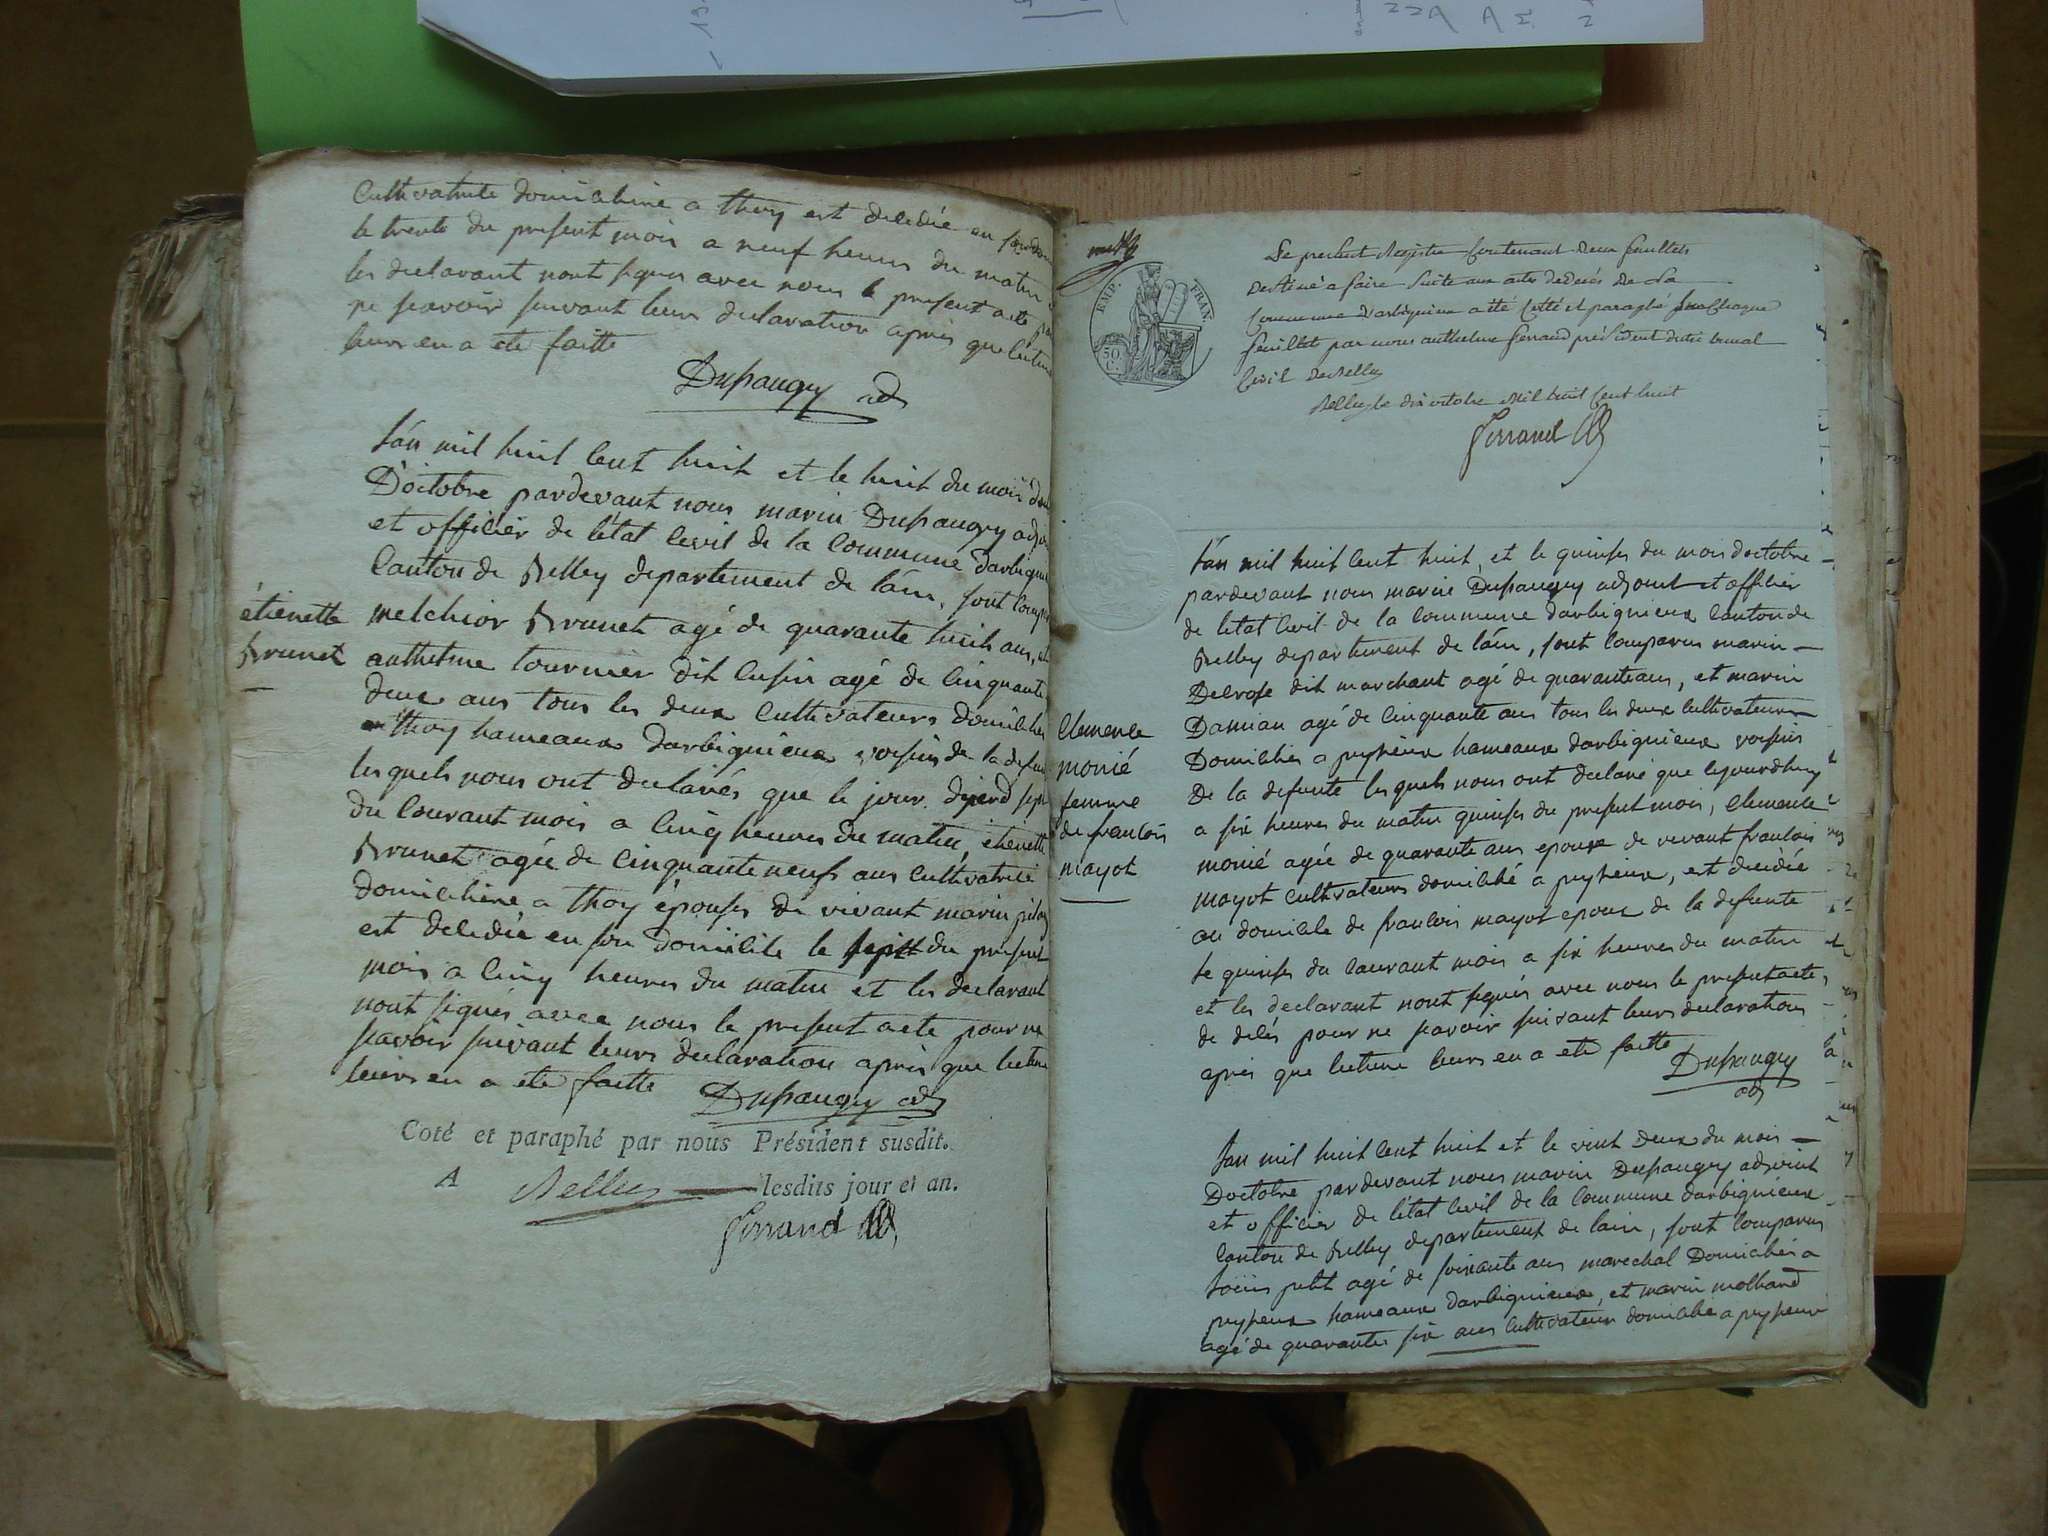 Cultivatrice domiciliere a thoy est decedée en son dom
le trente du present mois a neuf heures du matin
les declarant nont signes avec nous le present acte pour
ne scavoir suivant leurs declaration après que lecture
leurs en a ete faitte
Dupaugey adj
L'an mil huit cent huit et le huit du mois
D'octobre pardevant nous marin Dupaugey adjo
et officier de l'état Civil de la Commune darbignieu
Canton de Belley departement de l'ain, sont compa
étienette
Brunet
melchior Brunet agé de quarante huit ans, et
anthelme tournier dit cusin agé de Cinquante
deux ans tous les deux Cultivateurs domiciliés
thoy hameaux darbignieux voisin de la defunte
les quels nous ont declarés que le jour dyerd sept
du Courant mois a Cinq heures du matin, etienette
Brunet agée de Cinquante neufs ans Cultivatrice
domiciliere a thoy épouses de vivant marin
est decedée en son domicile le sept du present
mois a Cinq heures du matin et les declarant
nont signés avec nous le present acte pour ne
scavoir suivant leurs declaration après que lecture
leurs en a ete faitte Dupaugey adj
Coté et paraphé par nous Président susdit.
A Belley lesdits jour et an.
Ferrand
EMP. FRAN.
50 C.
Le present Registre Contenant deux feuillets
destiné a faire suite aux actes de decés de La
Commune d'arbignieu a été Cotté et paraphé sur Chaque
feuillet par nous anthelme ferrand président du tribunal
Civil de Belley
Belley le dix octobre Mil huit Cent huit
Ferrand
L'an mil huit Cent huit, et le quinses du mois doctobre
pardevant nous marin Dupaugey adjoint et officier
de l'etat Civil de la Commune darbignieux Canton de
Belley departement de l'ain, sont Comparus marin
Delrose dit marchant agé de quarante ans, et marin
Damian agé de Cinquante ans tous les deux Cultivateurs
Clemence
monié
femme
de francois
mayot
Domiciliés a peyzieux hameaux darbignieux voisins
De la defunte les quels nous ont declaré que cejourdhuy
a six heures du matin quinses du present mois, Clemence
monié agée de quarante ans epouse de vivant francois
mayot Cultivateurs domicilié a peyzieux, est decedée
au domicile de francois mayot epoux de la defunte
le quinses du Courant mois a six heures du matin
et les declarant nont signés avec nous le present acte
de decés pour ne scavoir suivant leurs declaration
après que lecture leurs en a ete faitte Dupaugey
adj
L'an mil huit Cent huit et le vint deux du mois
Doctobre pardevant nous marin Dupaugey adjoint
et officier de l'état Civil de la Commune darbignieux
Canton de Belley departement de l'ain, sont Comparus
Loüis petit agé de soixante ans marechal Domicilié a
peyzieux hameaux darbignieux, et marin molhand
agé de quarantes six ans Cultivateur domicilié a peyzieux